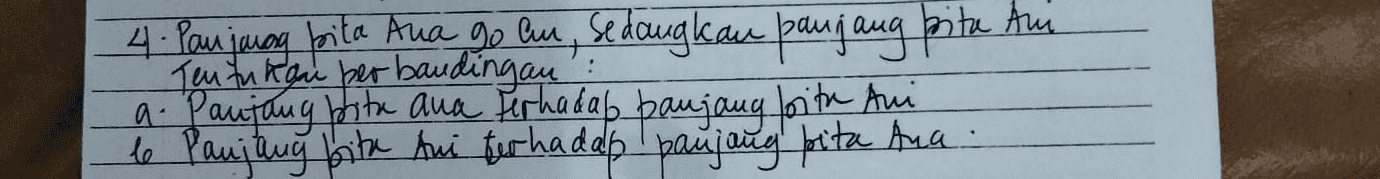 4. Panjang pita Ana 90 cm, sedangkan panjang pita Ani
Tentukan perbandingan :
a. Panjang pita ana terhadap panjang pita Ani
b Panjang pita Ani terhadap panjang pita Ana.